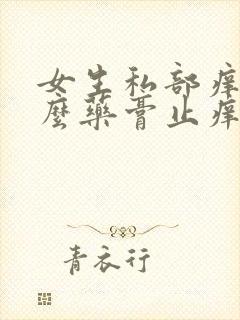 女生私部痒
麼藥膏止痒
青衣行